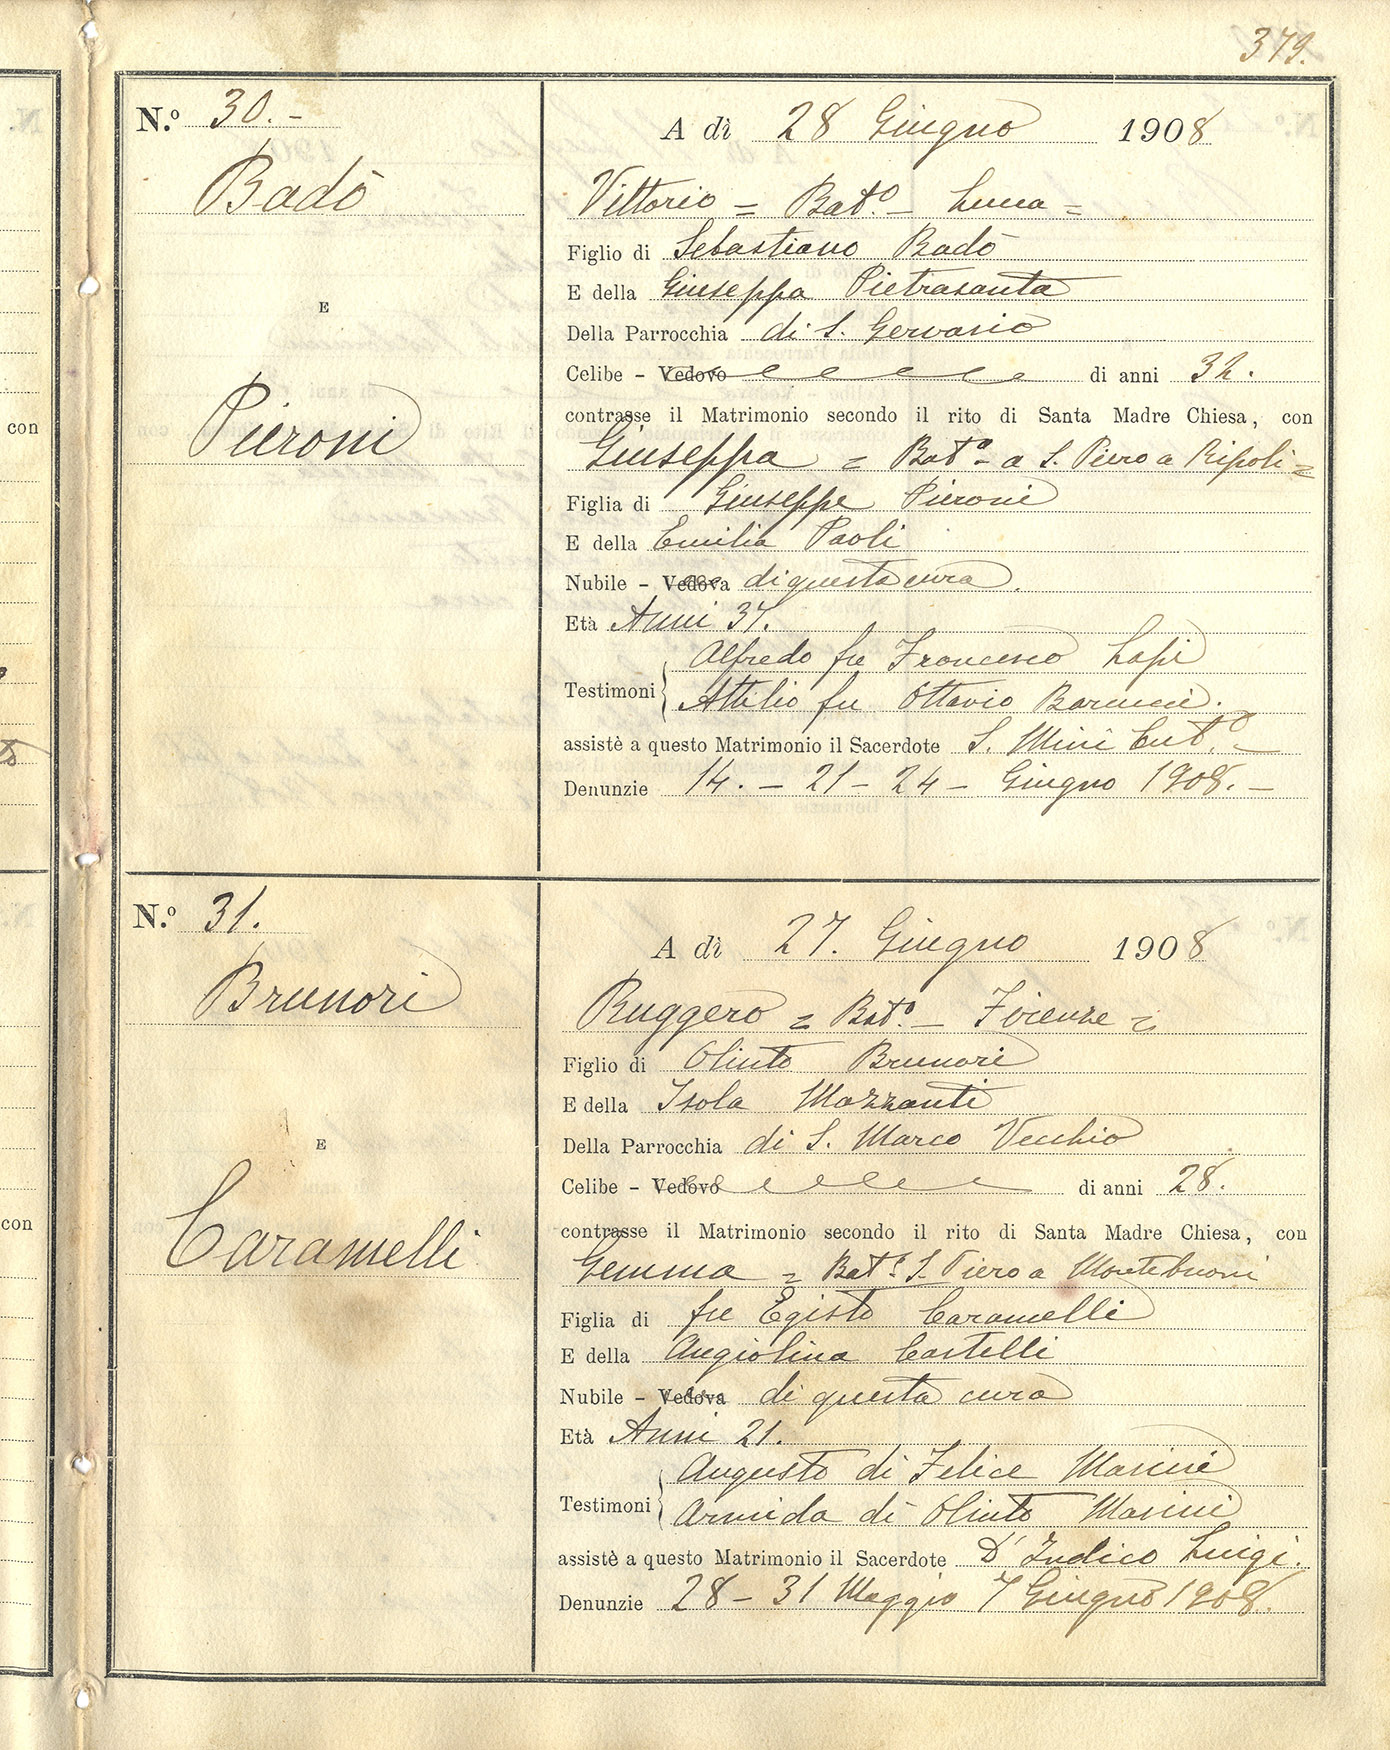 379.
N.º 30.-
Badò
E
Pieroni
A dì 28 Giugno 1908
Vittorio = Batº. - Lucca =
Figlio di Sebastiano Badò
E della Giuseppa Pietrasanta
Della Parrocchia di S. Gervasio
Celibe - Vedovo di anni 32.
contrasse il Matrimonio secondo il rito di Santa Madre Chiesa, con
Giuseppa = Batº - a S. Piero a Ripoli =
Figlia di Giuseppe Pieroni
E della Emilia Paoli
Nubile - Vedova di questa cura.
Età Anni 37.
Testimoni Alfredo fu Francesco Lapi
Attilio fu Ottavio Barucci.
assistè a questo Matrimonio il Sacerdote S. Mini Cutº. -
Denunzie 14. - 21 - 24 - Giugno 1908. -
N.º 31.
Brunori
E
Caramelli
A dì 27. Giugno 1908
Ruggero = Batº. - Firenze =
Figlio di Olinto Brunori
E della Isola Mazzanti
Della Parrocchia di S. Marco Vecchio
Celibe - Vedovo di anni 28.
contrasse il Matrimonio secondo il rito di Santa Madre Chiesa, con
Gemma = Batª. S. Piero a Montebuoni
Figlia di fu Egisto Caramelli
E della Angiolina Castelli
Nubile - Vedova di questa cura
Età Anni 21.
Testimoni Augusto di Felice Marini
Armida di Olinto Marini
assistè a questo Matrimonio il Sacerdote D'Indico Luigi.
Denunzie 28 - 31 Maggio 7 Giugno 1908.
con
con